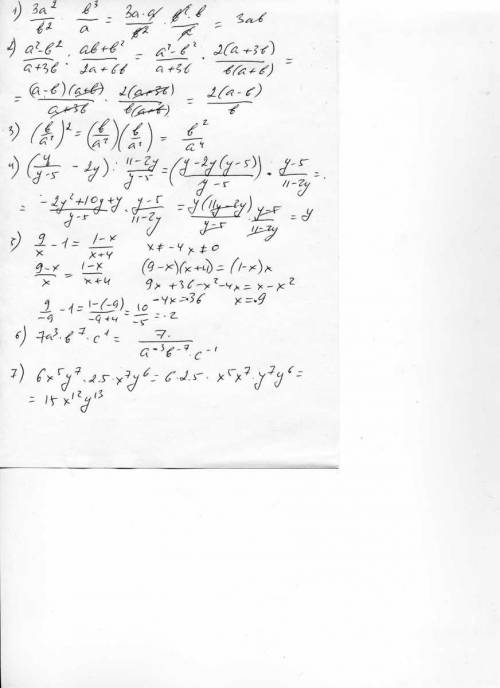 1) 3a²/в² · в³/a = 3a·a/в² · в²·в/a = 3aв
2) a²-в²/a+3в : aв+в²/2a+6в = a²-в²/a+3в · 2(a+3в)/в(a+в) =
= (a-в)(a+в)/a+3в · 2(a+3в)/в(a+в) = 2(a-в)/в
3) (в/a²)² = (в/a²)(в/a²) = в²/a⁴
4) (y/y-5 - 2y) : 11-2y/y-5 = (y-2y(y-5)/y-5) · y-5/11-2y =
= -2y²+10y+y/y-5 · y-5/11-2y = y(11y-2y)/y-5 · y-5/11-2y = y
5) 9/x - 1 = 1-x/x+4 x≠-4 x≠0
9-x/x = 1-x/x+4 (9-x)(x+4) = (1-x)x
9x+36-x²-4x = x-x²
9/-9 - 1 = 1-(-9)/-9+4 = 10/-5 = -2 -4x=36 x=-9
6) 7a³·в⁷·c¹ = 7/a⁻³в⁻⁷·c⁻¹
7) 6x⁵y⁷·2.5·x⁷y⁶ = 6·2.5·x⁵x⁷·y⁷y⁶ =
= 15x¹²y¹³